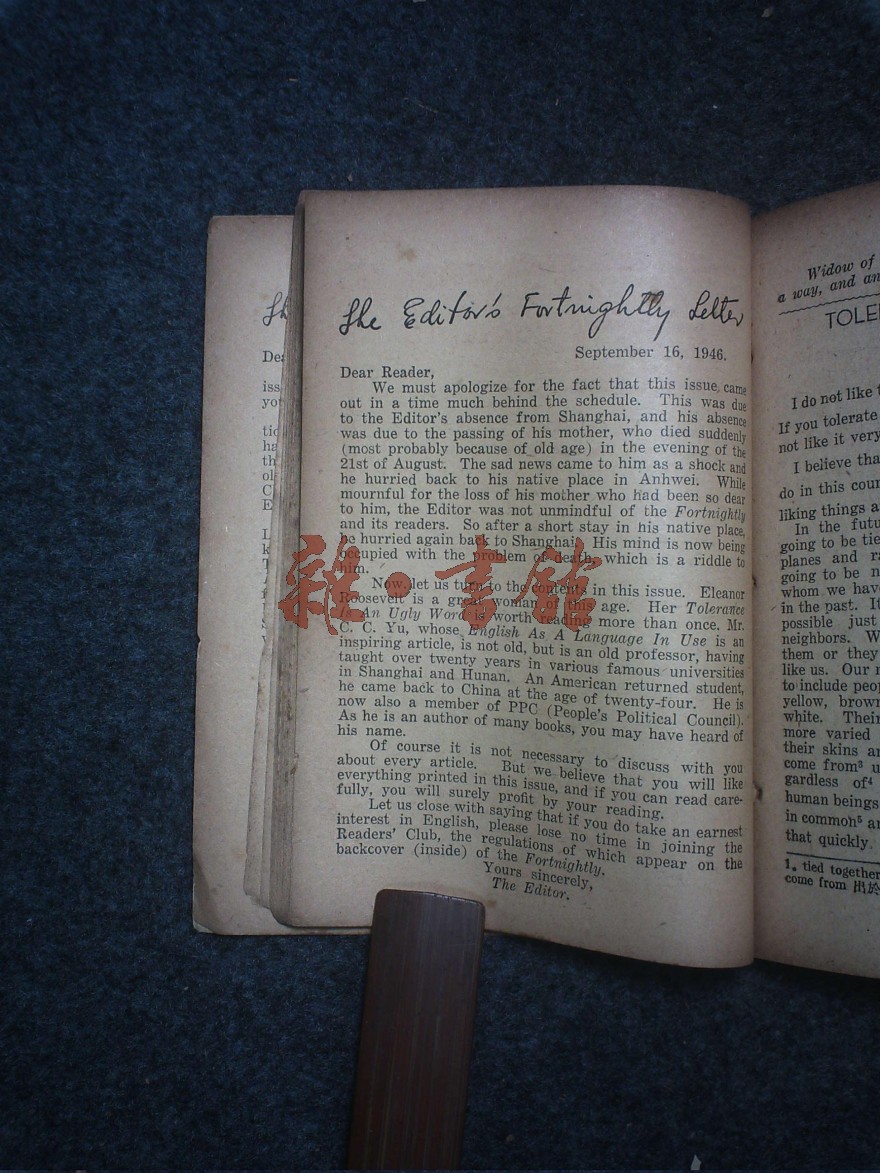 The Editor's Fortnightly Letter
September 16, 1946.
Dear Reader,
We must apologize for the fact that this issue came
out in a time much behind the schedule. This was due
to the Editor's absence from Shanghai, and his absence
was due to the passing of his mother, who died suddenly
(most probably because of old age) in the evening of the
21st of August. The sad news came to him as a shock and
he hurried back to his native place in Anhwei. While
mournful for the loss of his mother who had been so dear
to him, the Editor was not unmindful of the Fortnightly
and its readers. So after a short stay in his native place,
he hurried again back to Shanghai. His mind is now being
occupied with the problem of death, which is a riddle to
him.
Now, let us turn to the contents in this issue. Eleanor
Roosevelt is a great woman of this age. Her Tolerance
Is An Ugly Word is worth reading more than once. Mr.
C. C. Yu, whose English As A Language In Use is an
inspiring article, is not old, but is an old professor, having
taught over twenty years in various famous universities
in Shanghai and Hunan. An American returned student,
he came back to China at the age of twenty-four. He is
now also a member of PPC (People's Political Council).
As he is an author of many books, you may have heard of
his name.
Of course it is not necessary to discuss with you
about every article. But we believe that you will like
everything printed in this issue, and if you can read care-
fully, you will surely profit by your reading.
Let us close with saying that if you do take an earnest
interest in English, please lose no time in joining the
Readers' Club, the regulations of which appear on the
backcover (inside) of the Fortnightly.
Yours sincerely,
The Editor.
雜·書館
Widow of
a way, and an
TOLE
I do not like
If you tolerate
not like it very
I believe tha
do in this cour
liking things a
In the futu
going to be tie
planes and ra
going to be n
whom we have
in the past. It
possible just
neighbors. W
them or they
like us. Our n
to include peop
yellow, brown
white. Their
more varied
their skins an
come from³ u
gardless of⁴
human beings
in common⁵ an
that quickly.
1. tied together
come from 出於